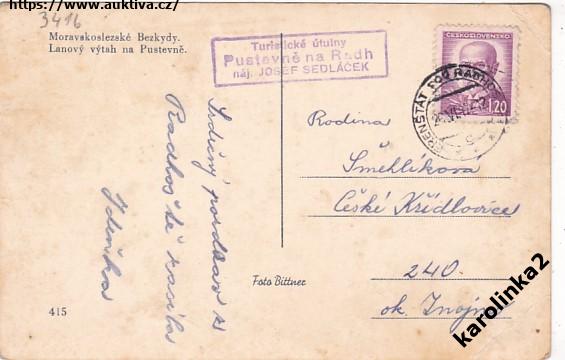 https://www.auktiva.cz/
3416
Moravskoslezské Bezkydy.
Lanový výtah na Pustevně.
Turistické útulny
Pustevně na Radh
náj. JOSEF SEDLÁČEK
ČESKOSLOVENSKO
1.20
FRENŠTÁT POD RADH
Srdečný pozdrav z
Radhoště zasílá
Zdeňka
Rodina
Smehlíkova
České Křídlovice
240.
ok. Znojmo
Foto Bittner
415
karolinka2